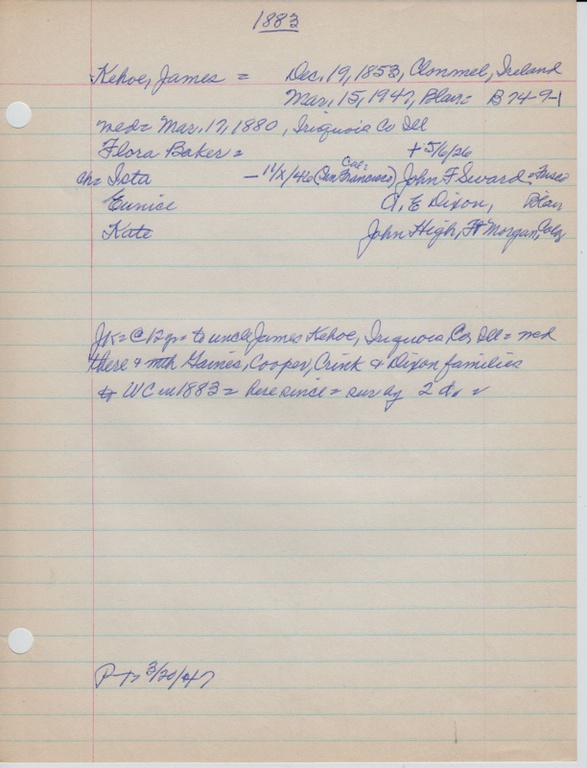 1883
Kehoe, James = Dec, 19, 1853, Clonmel, Ireland
Mar, 15, 1947, Blair = B 74-9-1
med = Mar. 17, 1880, Iriquois Co Ill
Flora Baker = + 5/6/26
ch = Ista - 11/x/46 (San Francisco) Cal = John F Sward =
Eunice A, E Dixon, Blair
Kate John High, Ft Morgan, Colo
JK = C 12 yr = to uncle James Kehoe, Iriquois Co, Ill = med
there & mth Gaines, Cooper, Crink & Dixon families
to WC in 1883 = here since = sur by 2 da =
P T 3/20/47